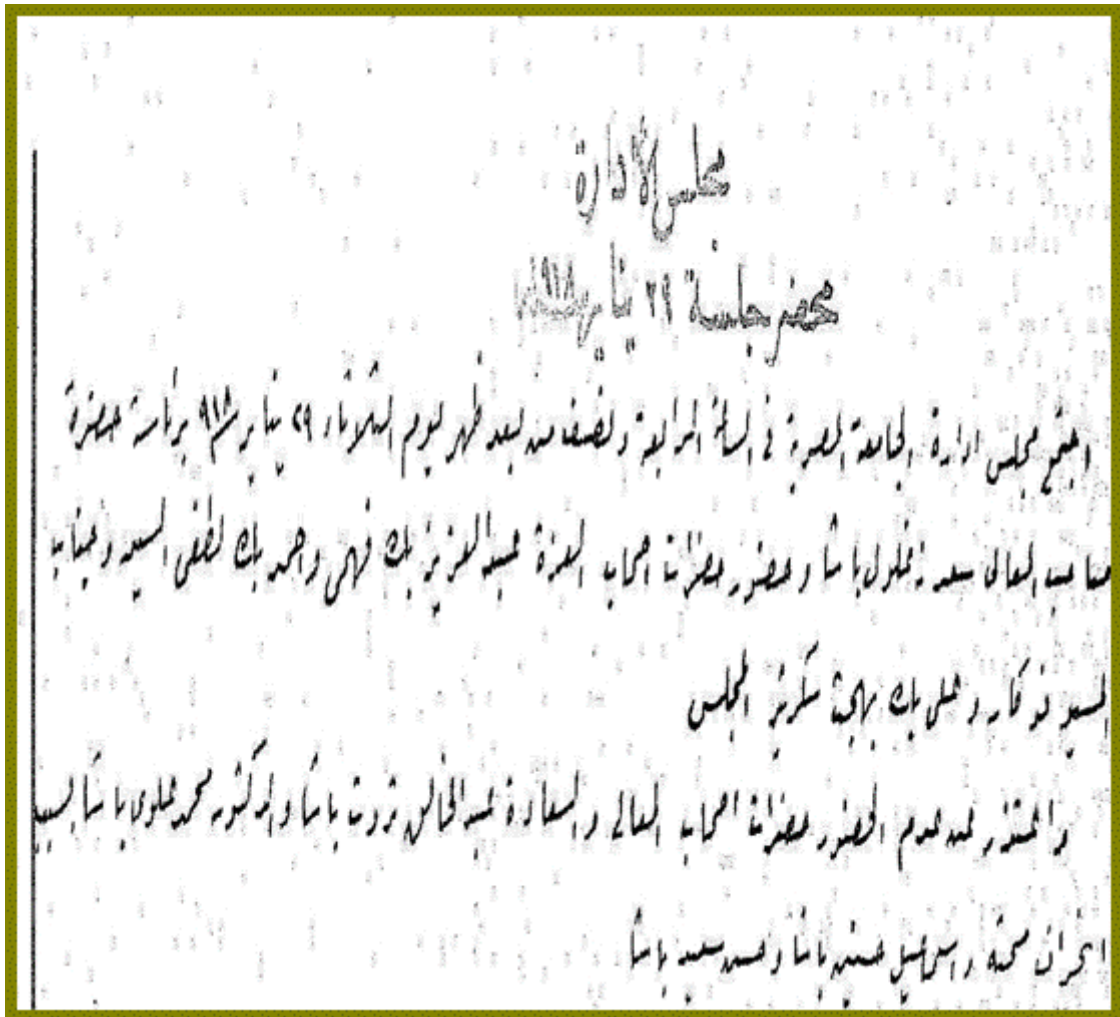 مجلس الأدارة
محضر جلسة ٢٩ يناير ٩١٨
اجتمع مجلس ادارة الجامعة المصرية في الساعة الرابعة ونصف من بعد ظهر يوم الثلاثاء ٢٩ يناير ٩١٨ برئاسة حضرة
صاحب المعالى سعد زغلول باشا وحضور حضرات اصحاب العزة عبد العزيز بك فهمى واحمد بك لطفى السيد وجناب
المسيو فوكار وعلى بك بهجت سكرتير المجلس
واعتذر عن عدم الحضور حضرات اصحاب المعالى والسعادة عبد الخالق ثروت باشا والدكتور محمد علوى باشا بسبب
انحراف صحته واسماعيل حسنين باشا وحسن سعيد باشا